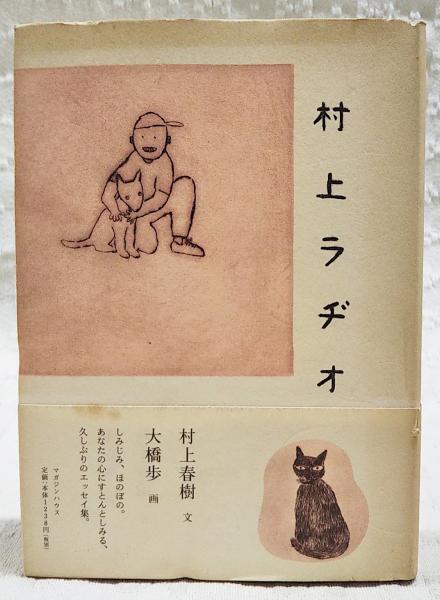 村上ラヂオ
村上春樹 文
大橋歩 画
しみじみ、ほのぼの。
あなたの心にすとんとしみる、
久しぶりのエッセイ集。
マガジンハウス
定価:本体1238円(税別)